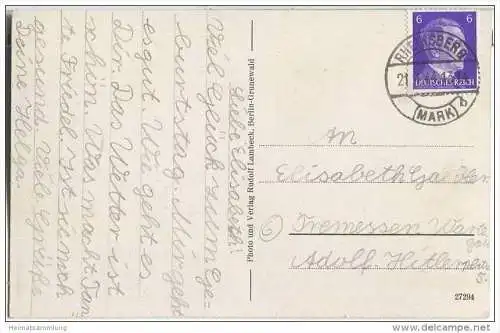 Liebe Elisabeth!
Viel Glück zum Ge-
burtstag. Mir geht
es gut. Wie geht es
Dir. Das Wetter ist
schön. Was macht Tan-
te Friedel. Ist sie noch
gesund. Viele Grüße
Deine Helga.
Photo und Verlag Rudolf Lambeck, Berlin-Grunewald
6 6
DEUTSCHES REICH
(MARK) b
An
Elisabeth
Tremessen
Adolf-Hitlerplatz
5.
27294
Heimatsammlung